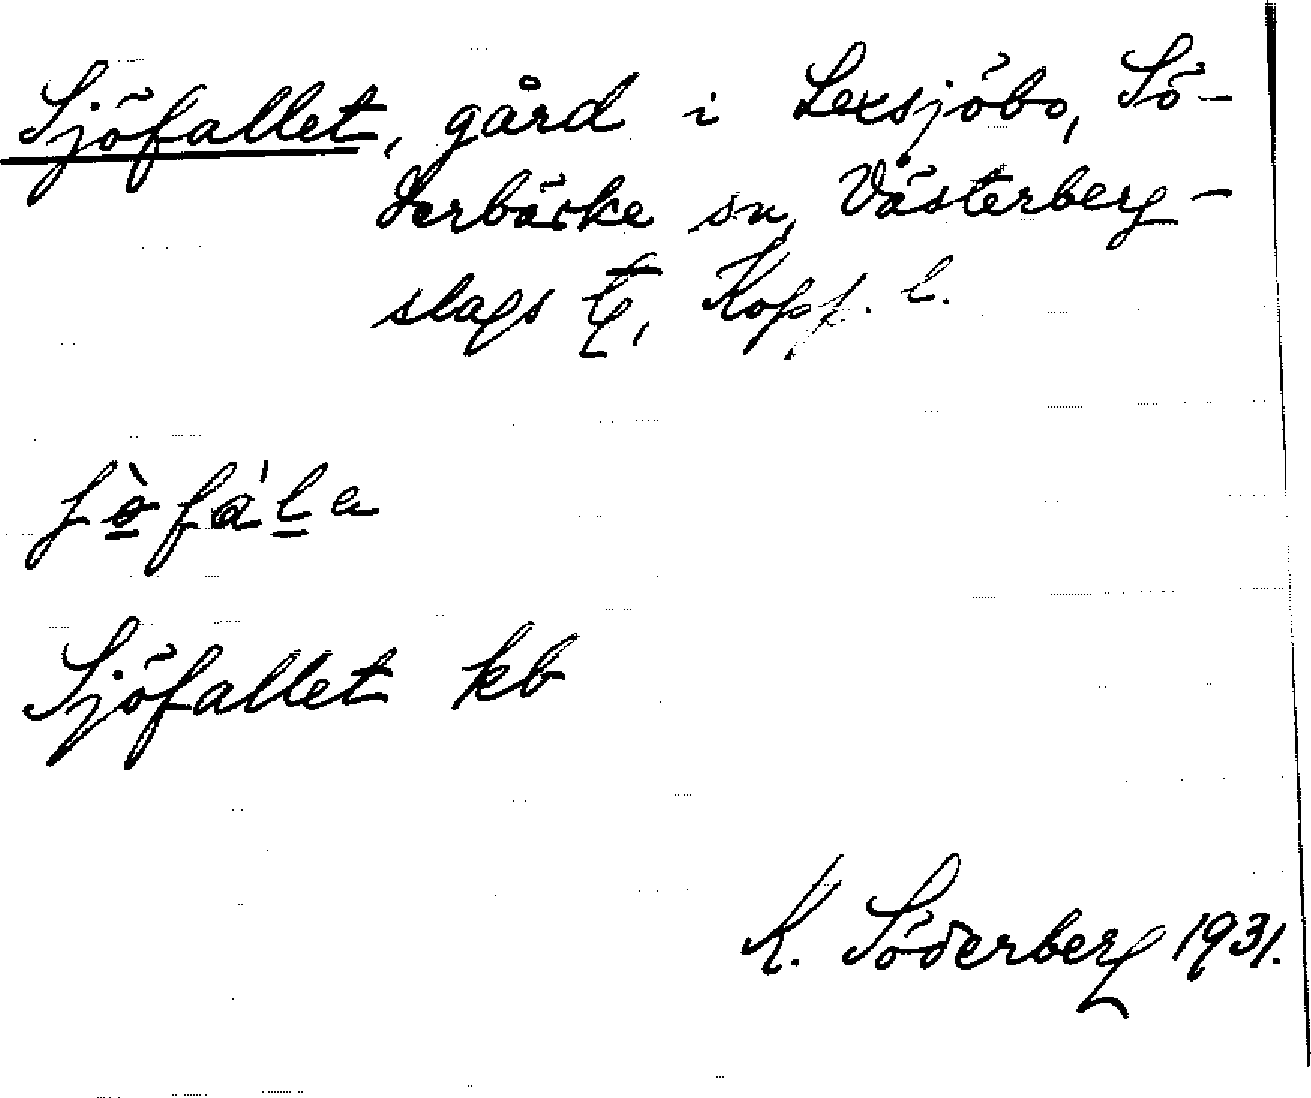 Sjöfallet, gård i Lexsjöbo, Sö-
derbärke sn, Västerberg-
slags tg, Kopp. l.
Sjöfallet kb
K. Söderberg 1931.